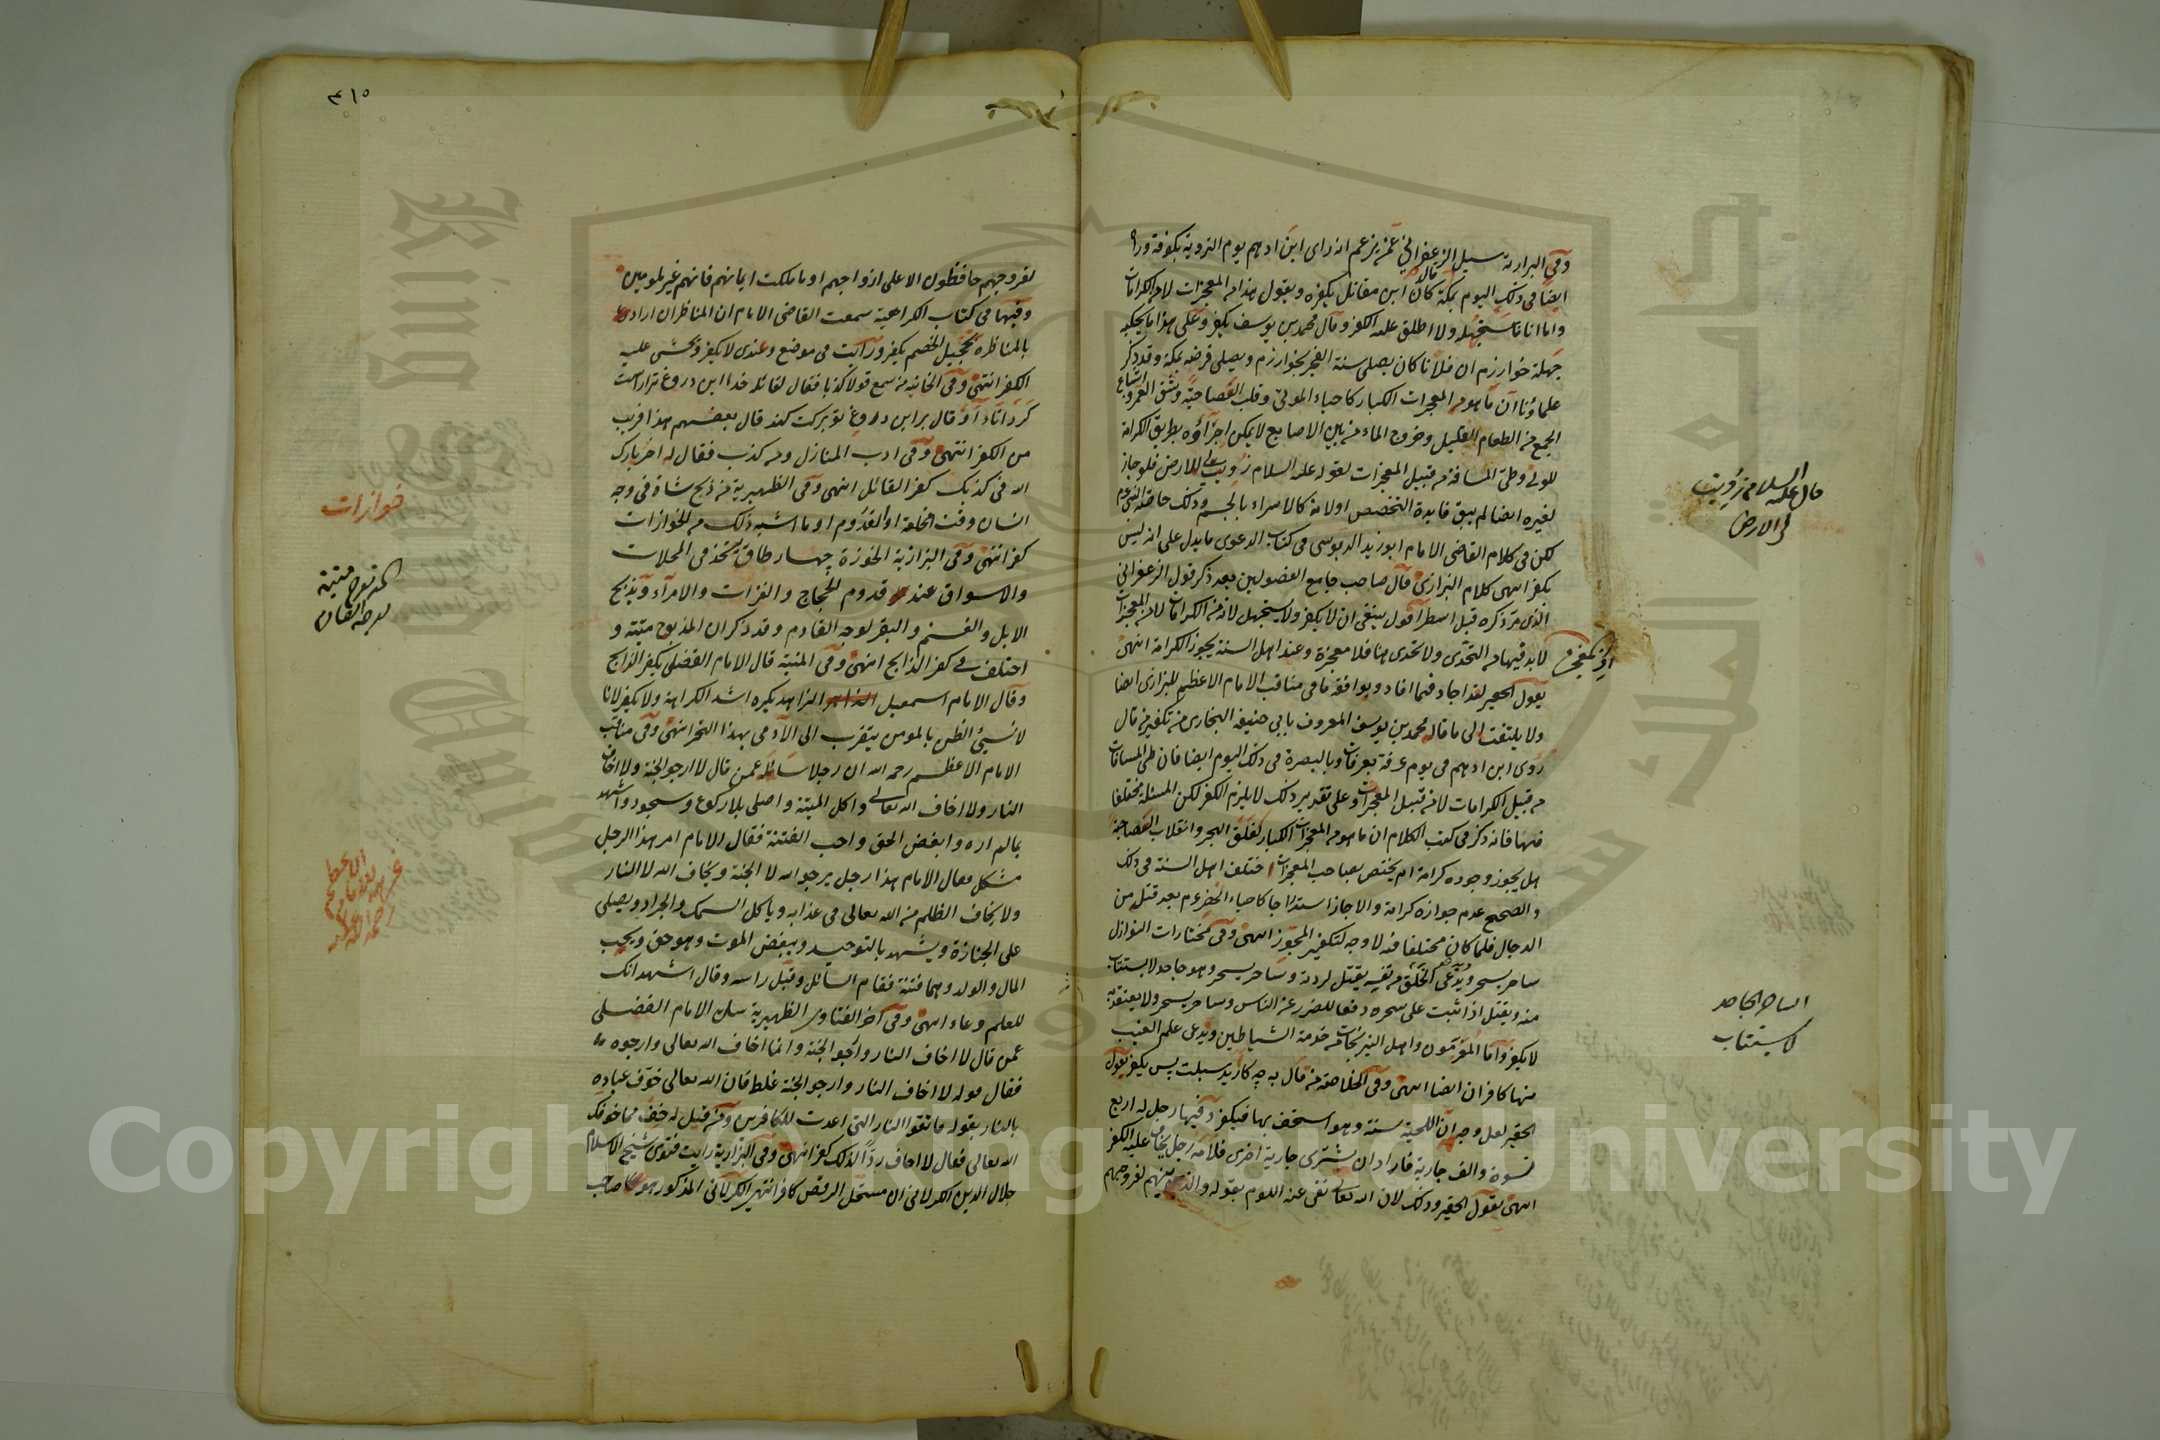 وفي البزازية سئل الزعفراني عمن يزعم انه راى ابن ادهم يوم التروية بكوفة وراه
ايضا في ذلك اليوم بمكة قال كان ابن مقاتل يكفره ويقول هذا من المعجزات لا من الكرامات
واما انا فاستجهله ولا اطلق عليه الكفر وقال محمد بن يوسف يكفر وعلى هذا ما يحكيه
جهلة خوارزم ان فلانا كان يصلي سنة الفجر بخوارزم ويصلي فرضه بمكة وقد ذكر
علماؤنا ان ما هو من المعجزات الكبار كاحياء الموتى وقلب العصا حية وشق القمر واشباع
الجمع من الطعام القليل وخروج الماء من بين الاصابع لا يمكن اجراؤه بطريق الكرامة
للولي وطي المسافة من قبيل المعجزات لقوله عليه السلام زويت لي الارض فلو جاز
لغيره ايضا لم يبق فايدة التخصيص اولانه كالاسراء بالجسم وذلك خاصة النبي عم
لكن في كلام القاضي الامام ابو زيد الدبوسي في كتاب الدعوى ما يدل على انه ليس
بكفر انتهى كلام البزازي قال صاحب جامع الفصولين بعد ذكر قول الزعفراني
الذي مر ذكره قبل اسطر اقول ينبغي ان لا يكفر ولا يستجهل لانه من الكرامات لا من المعجزات
لا بد فيها من التحدي ولا تحدي هنا فلا معجزة وعند اهل السنة يجوز الكرامة انتهى
يقول الحقير لقد اجاد فيما افاد ويوافقه ما في مناقب الامام الاعظم للبزازي ايضا
ولا يلتفت الى ما قاله محمد بن يوسف المعروف بابي حنيفة البخاري من تكفير من قال
رؤى ابن ادهم في يوم عرفة بعرفات وبالبصرة في ذلك اليوم ايضا فان طي المسافات
من قبيل الكرامات لا من قبيل المعجزات وعلى تقدير ذلك لا يلزم الكفر لكن المسئلة مختلفا
فيها فانه ذكر في كتب الكلام ان ما هو من المعجزات الكبار كفلق البحر وانقلاب العصا حية
هل يجوز وجوده كرامة ام يختص بصاحب المعجزات اختلف اهل السنة في ذلك
والصحيح عدم جوازه كرامة والا جاز استدلالا باحياء الخضر عم بعد قتله من
الدجال فلما كان مختلفا فيه لا وجه لتكفير المجوز انتهى وفي مختارات النوازل
ساحر يسحر ويدعي الخلق من نفسه يقتل لردته وساحر يسحر وهو جاحد لا يستتاب
منه ويقتل اذا ثبت على سحره دفعا للضرر عن الناس وساحر يسحر ولا يعتقد به
لا يكفر واما المعزمون واهل النيرنجات من خدمة الشياطين ويدعى علم الغيب
منها كافران ايضا انتهى وفي الخلاصة من قال به چه كار آيد سبلت پس يكفر يقول
الحقير لعل وجه ان اللحية سنة وهو استخف بها فيكفر وفيها رجل له اربع
نسوة والف جارية فاراد ان يشتري جارية اخرى فلامه رجل يخاف عليه الكفر
انتهى يقول الحقير وذلك لان الله تعالى نفى عنه اللوم بقوله والذين هم لفروجهم
قال عليه السلام زويت
لي الارض
اذ المعجزة
الساحر الجاحد
لا يستتاب
٣١٥
لفروجهم حافظون الا على ازواجهم او ما ملكت ايمانهم فانهم غير ملومين
وفيها في كتاب الكراهية سمعت القاضي الامام ان المناظر ان اراد
بالمناظرة تخجيل الخصم يكفر ورأيت في موضع وعندي لا يكفر ويخشى عليه
الكفر انتهى وفي الخانية من سمع قولا كذبا فقال لقائله خدا اين دروغ ترا راست
كرداناد او قال براين دروغ تو بركت كند قال بعضهم هذا قريب
من الكفر انتهى وفي ادب المنازل ومن كذب فقال له اخر بارك
الله في كذبك كفر القائل انتهى وفي الظهيرية من ذبح شاة في وجه
انسان وقت الخلعة او القدوم او ما اشبه ذلك من الخوازات
كفر انتهى وفي البزازية الخوزة چهار طاق يتخذ في المحلات
والاسواق عند قدوم الحجاج والغزات والامرآء ويذبح
الابل والغنم والبقر لوجه القادم وقد ذكر ان المذبوح ميتة و
اختلف في كفر الذابح انتهى وفي المنية قال الامام الفضلي يكفر الذابح
وقال الامام اسمعيل الزاهد يكره اشد الكراهة ولا يكفر لانا
لا نسيئ الظن بالمومن يتقرب الى الآدمي بهذا النحر انتهى وفي مناقب
الامام الاعظم رحمه الله ان رجلا سائله عمن قال لا ارجو الجنة ولا اخاف
النار ولا اخاف الله تعالى واكل الميتة واصلى بلا ركوع وسجود واشهد
بما لم اره وابغض الحق واحب الفتنة فقال الامام امر هذا الرجل
مشكل فقال الامام هذا رجل يرجو الله لا الجنة ويخاف الله لا النار
ولا يخاف الظلم من الله تعالى في عذابه وياكل السمك والجراد ويصلي
على الجنازة ويشهد بالتوحيد ويبغض الموت وهو حق ويحب
المال والولد وهما فتنة فقام السائل وقبل راسه وقال اشهد انك
للعلم وعاء انتهى وفي آخر الفتاوى الظهيرية سئل الامام الفضلي
عمن قال لا اخاف النار وارجو الجنة وانما اخاف الله تعالى وارجوه
فقال قوله لا اخاف النار وارجو الجنة غلط فان الله تعالى خوف عباده
بالنار بقوله فاتقوا النار التي اعدت للكافرين ومن قيل له خف مما خوفك
الله تعالى فقال لا اخاف ردا لذلك كفر انتهى وفي البزازية رايت فتوى شيخ الاسلام
جلال الدين الكرلاني ان مستحل الرقص كافر انتهى الكرلاني المذكور هو صاحب
خوازات
المذبوح ميتة
لوجه القادم